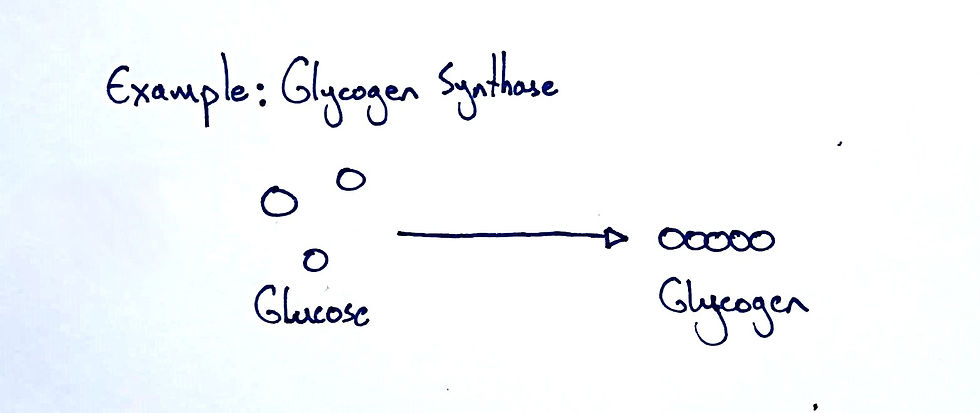 Example: Glycogen Synthase
Glucose
Glycogen